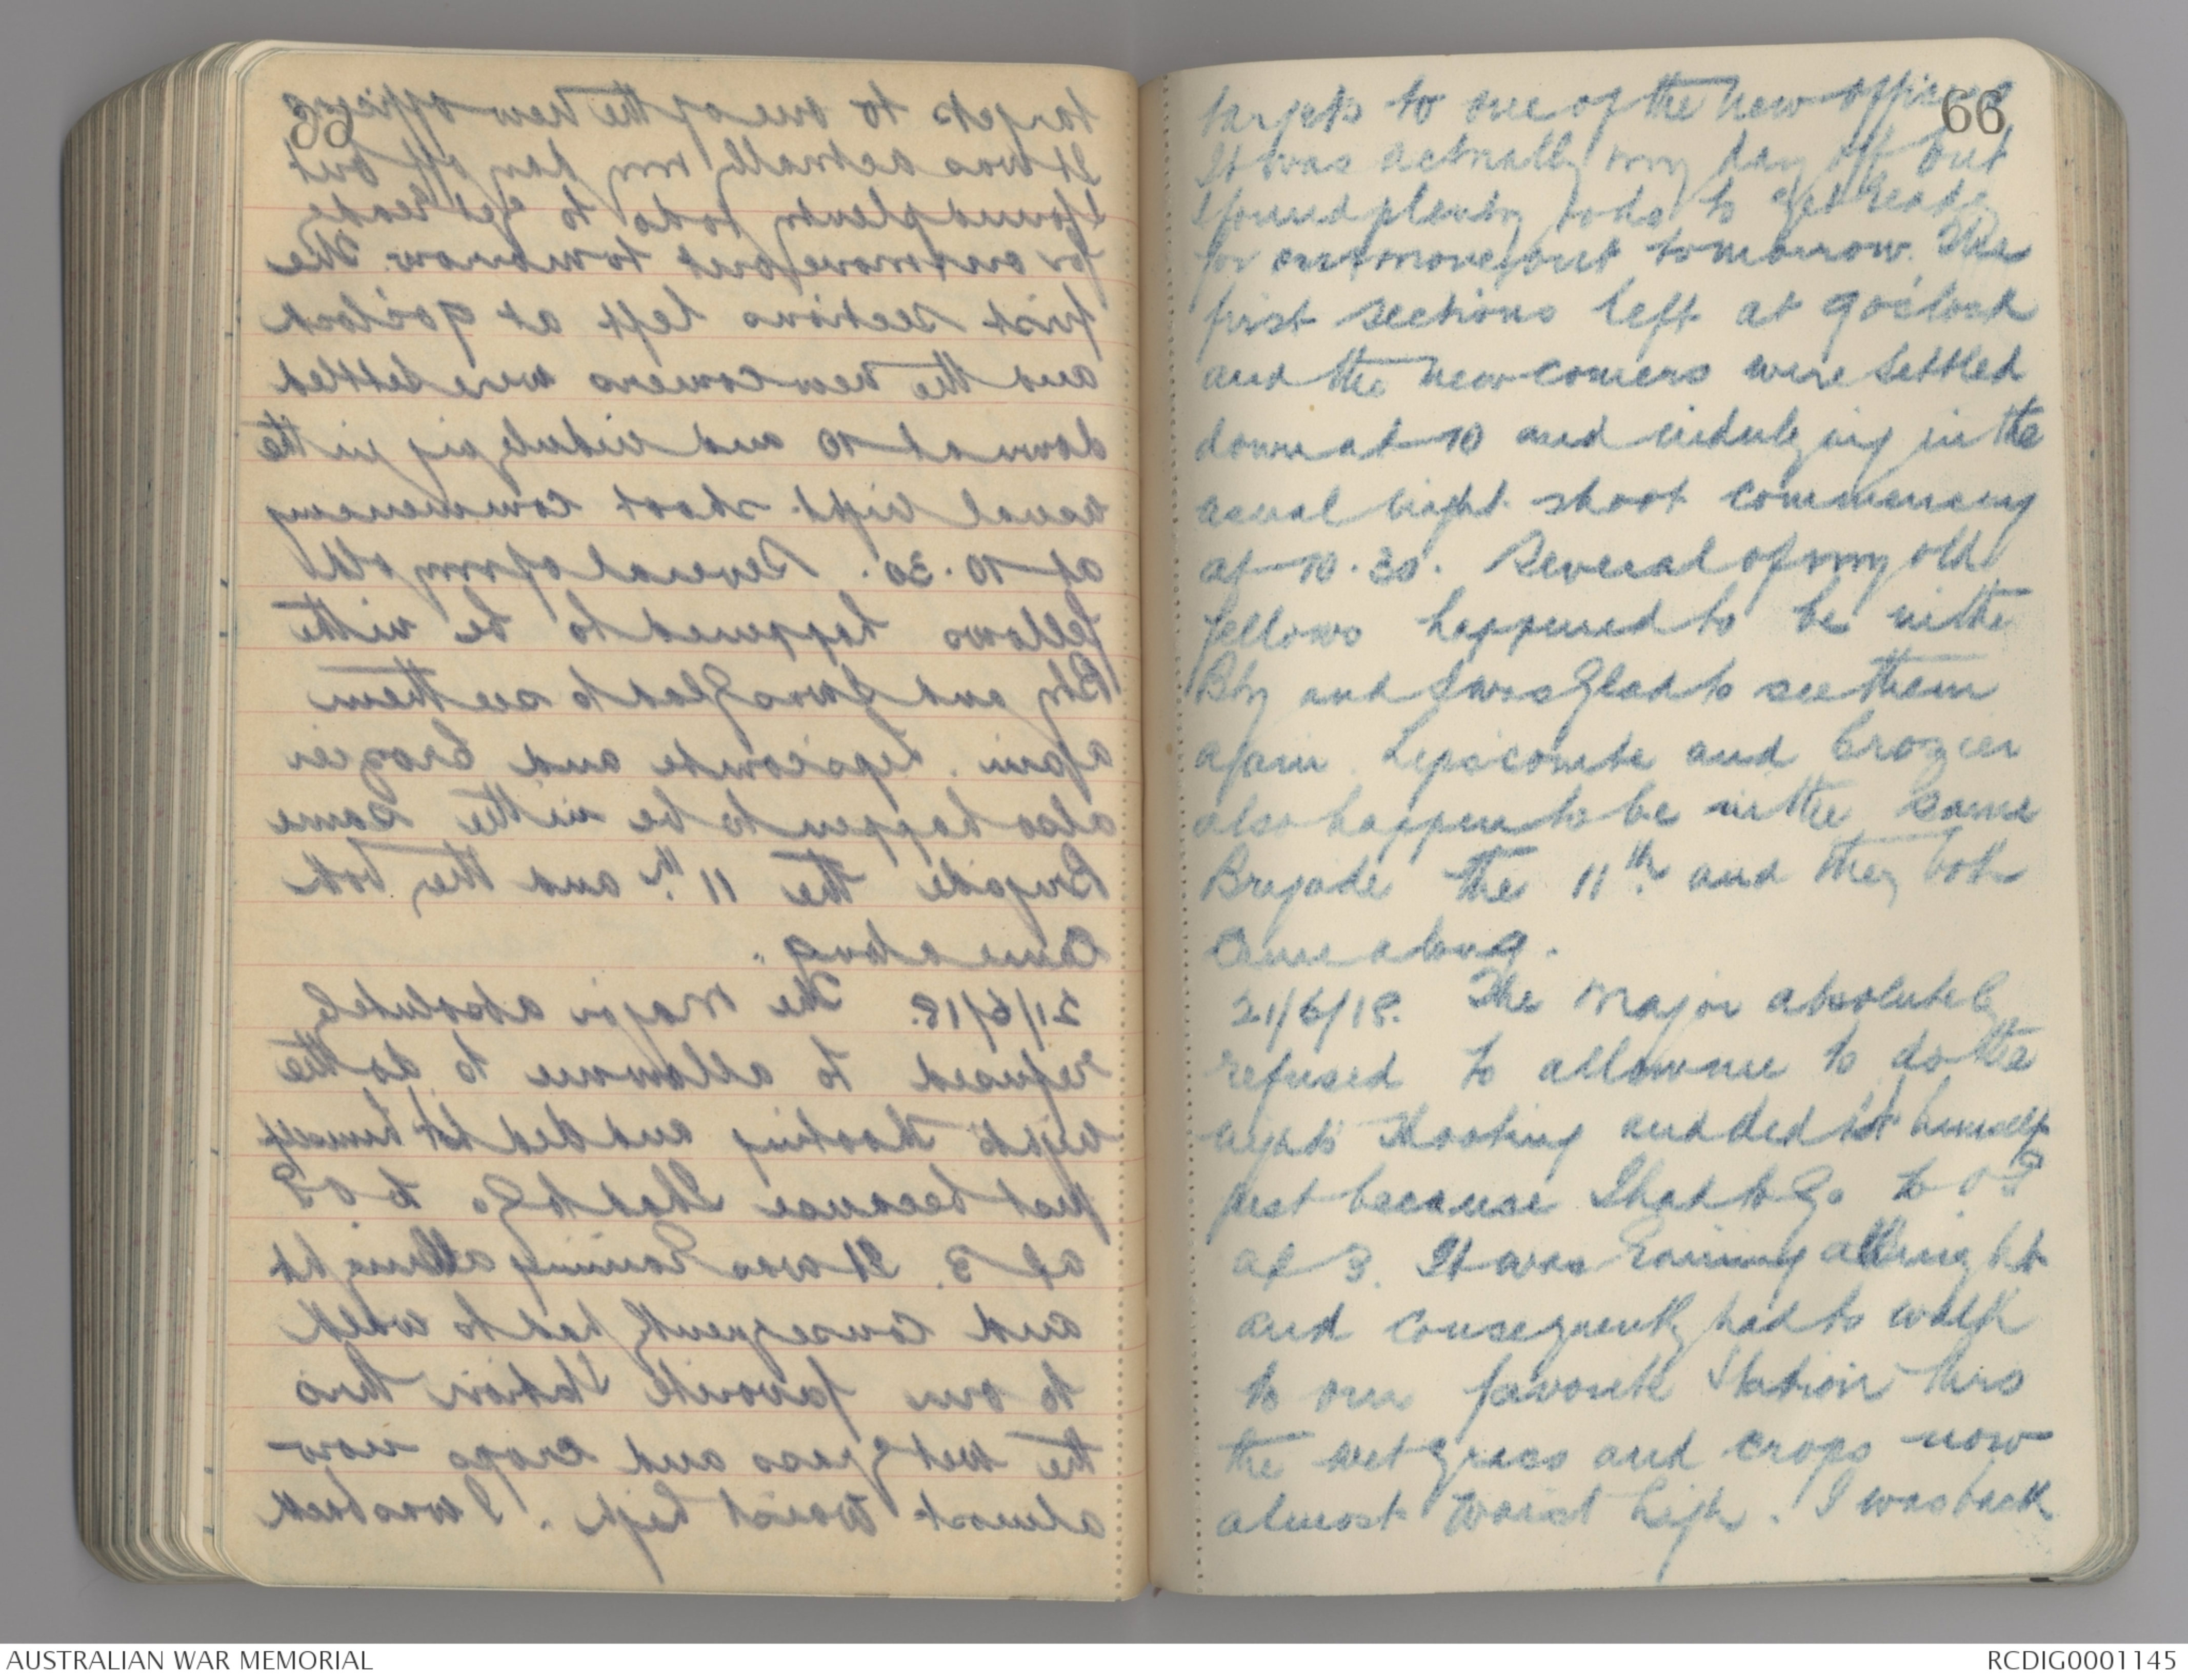 66
targets to one of the new officers
It was actually my day off but
I found plenty to do to get ready
for our move out tomorrow. The
first sections left at 9 o'clock
and the newcomers were settled
down at 10 and indulging in the
usual night shoot commencing
at 10.30. Several of my old
fellows happened to be in the
Bty and I was glad to see them
again. Lipscombe and Crozier
also happen to be in the same
Brigade the 11th. and they both
came along.
21/6/18. The Major absolutely
refused to allow me to do the
nights shooting and did it himself
just because I had to go to OP
at 3. It was raining all night
and consequently had to walk
to our favorite station thro
the wet grass and crops now
almost waist high. I was back
AUSTRALIAN WAR MEMORIAL
RCDIG0001145